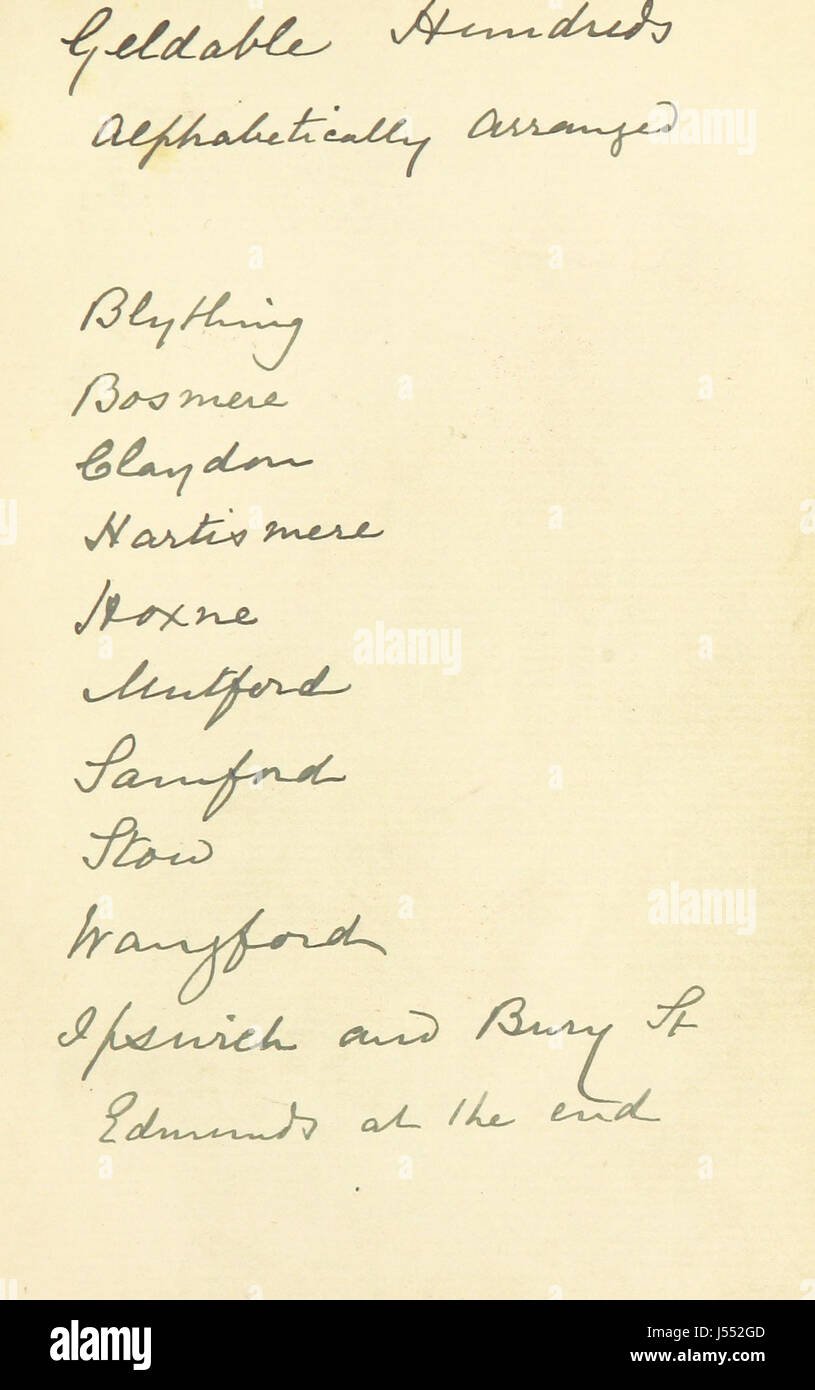 Geldable Hundreds
Alphabetically Arranged
Blything
Bosmere
Claydon
Hartismere
Hoxne
Mutford
Samford
Stow
Wangford
Ipswich and Bury St
Edmunds at the end
alamy
alamy
alamy
alamy
Image ID: J552GD
www.alamy.com